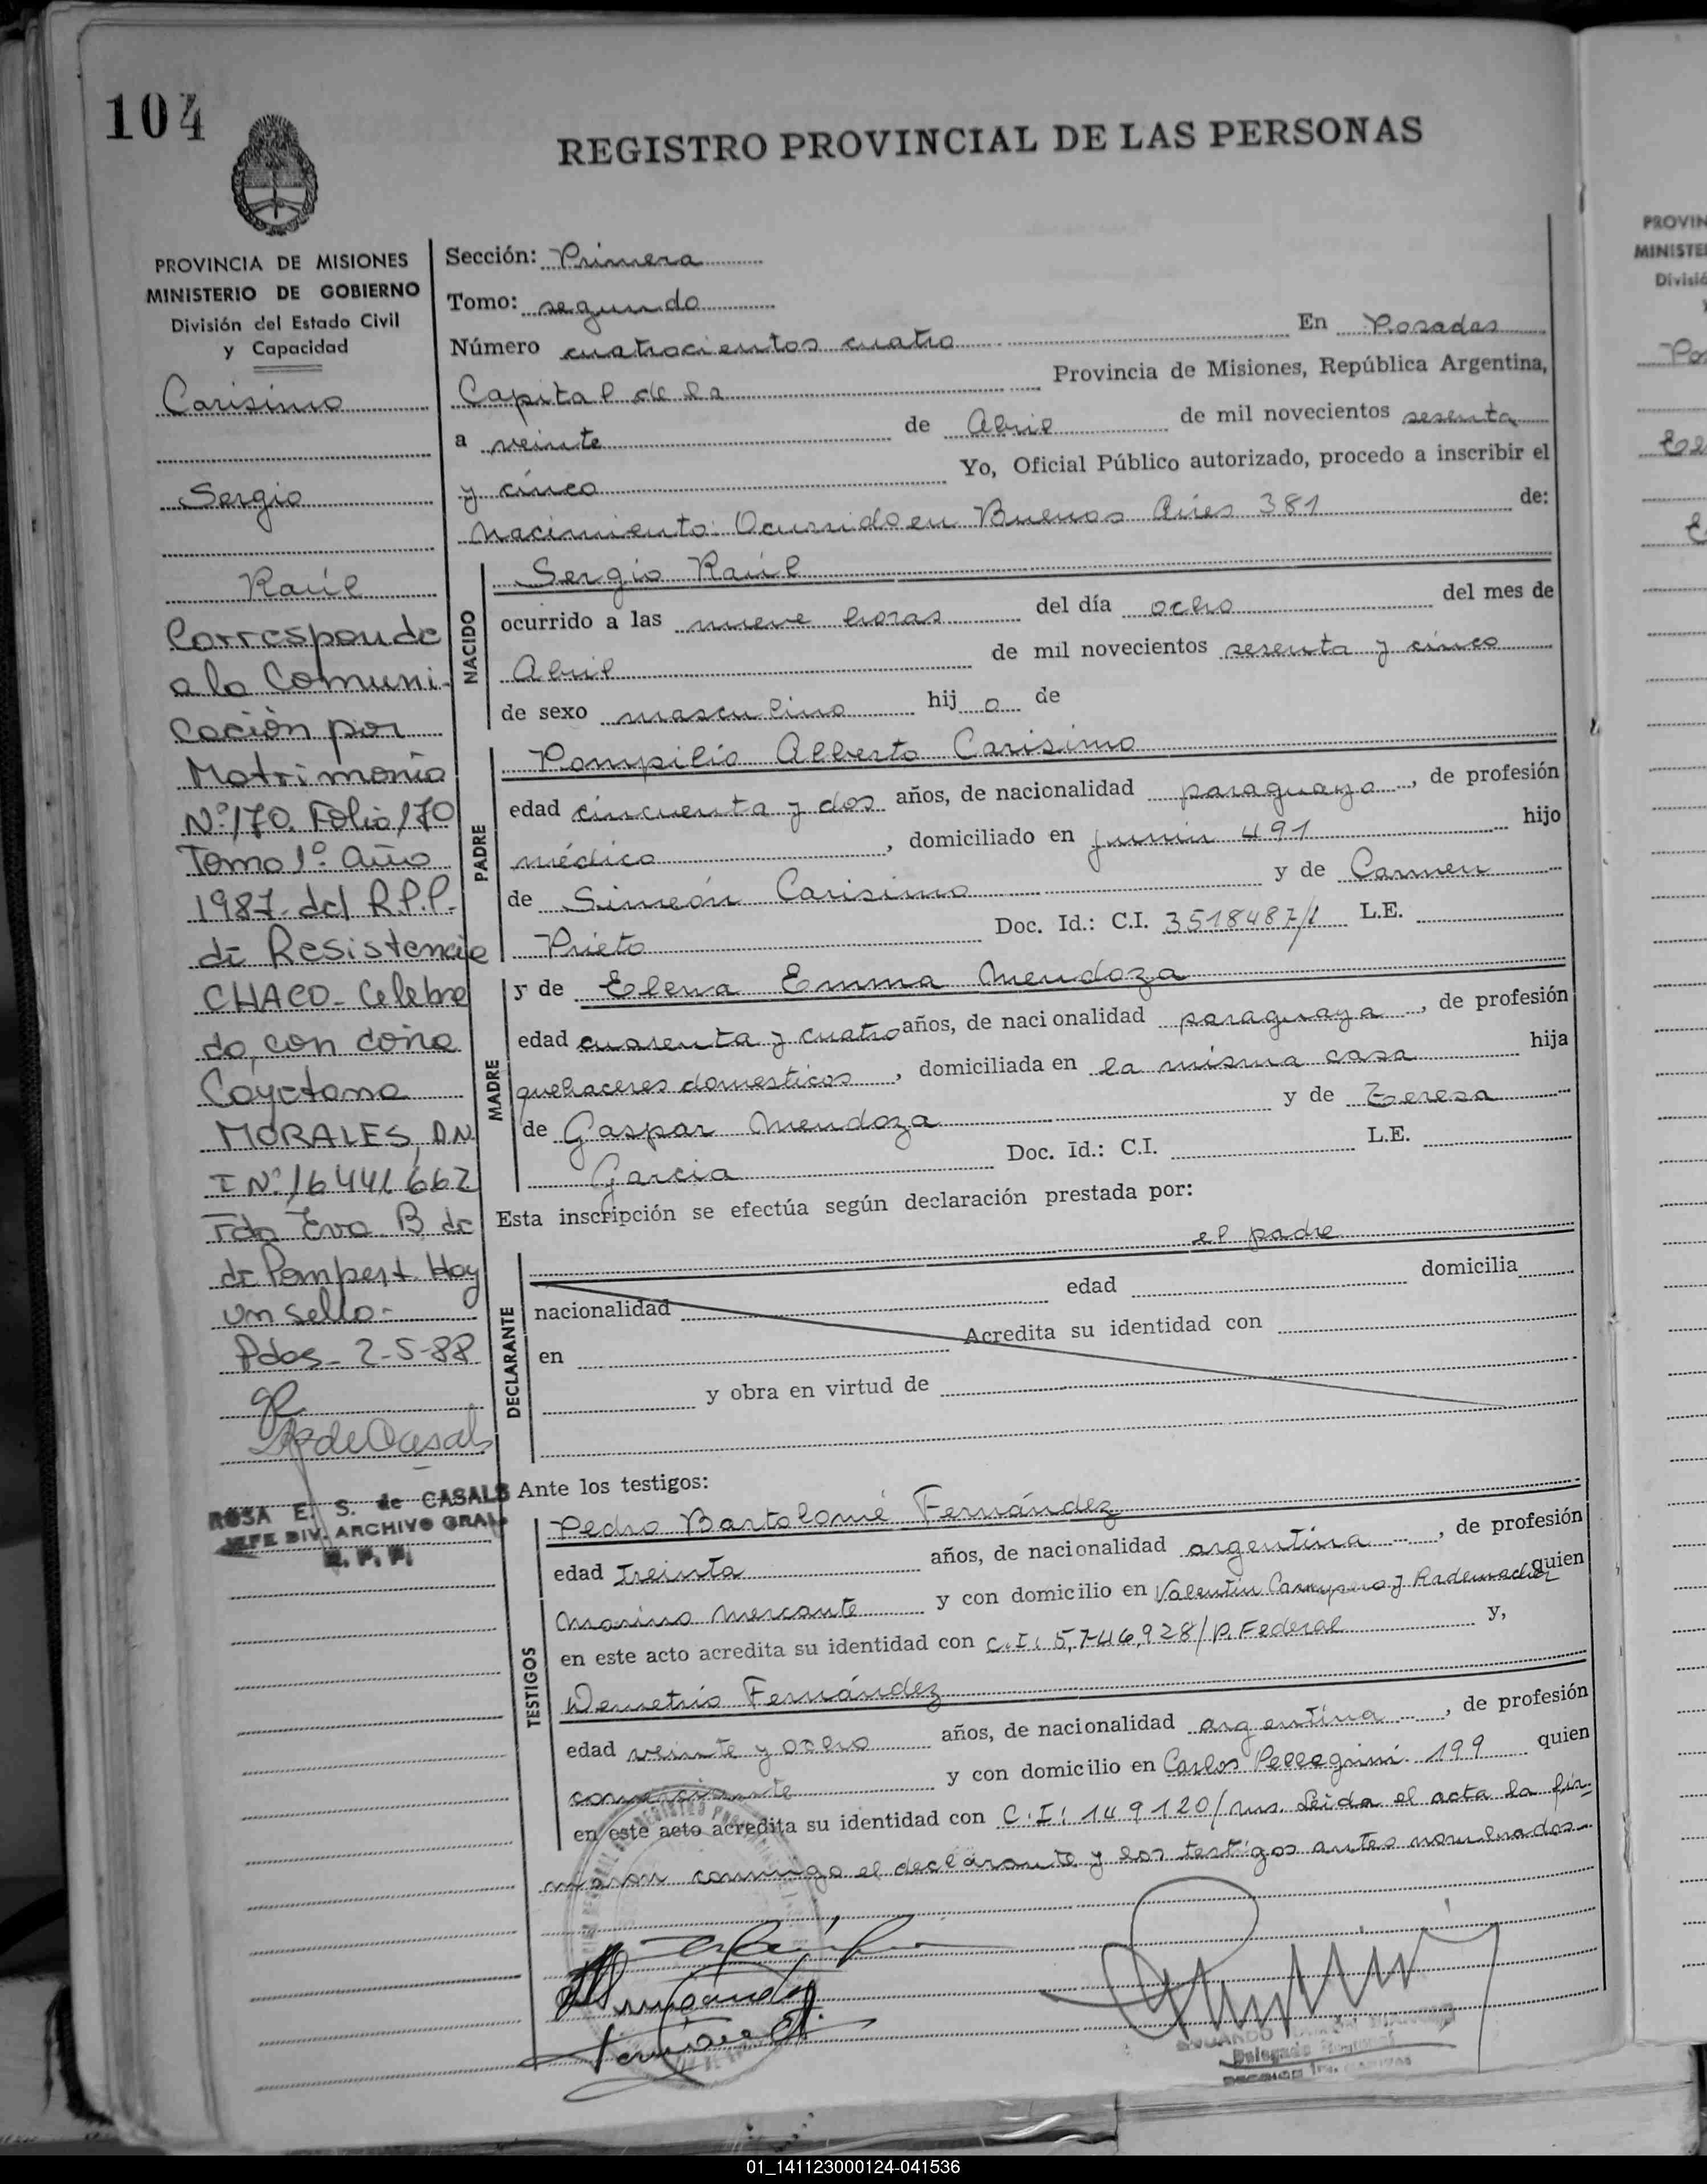 104
REGISTRO PROVINCIAL DE LAS PERSONAS
PROVINCIA DE MISIONES
MINISTERIO DE GOBIERNO
División del Estado Civil
y Capacidad
Carisimo
Sergio
Raúl
Corresponde
a la Comuni-
cación por
Matrimonio
Nº 170. Folio 170
Tomo 1º Año
1987 del R.P.P.
de Resistencia
CHACO - Celebra
do, con doña
Cayetana
MORALES, D.N.
I Nº 16441662
Fdo Eva B. de
de Pompert. Hay
un sello -
Pdas - 2-5-88
ROSA E. S. de CASALS
JEFE DIV. ARCHIVO GRAL.
R. P. P.
Sección: Primera
Tomo: segundo
Número cuatrocientos cuatro En Posadas
Capital de la Provincia de Misiones, República Argentina,
a veinte de Abril de mil novecientos sesenta
y cinco Yo, Oficial Público autorizado, procedo a inscribir el
nacimiento: Ocurrido en Buenos Aires 381 de:
NACIDO
Sergio Raúl
ocurrido a las nueve horas del día ocho del mes de
Abril de mil novecientos sesenta y cinco
de sexo masculino hij o de
PADRE
Pompilio Alberto Carisimo
edad cincuenta y dos años, de nacionalidad paraguaya, de profesión
médico, domiciliado en Junin 491 hijo
de Simeón Carisimo y de Carmen
Prieto Doc. Id.: C.I. 3518487/1 L.E.
MADRE
y de Elena Emma Mendoza
edad cuarenta y cuatro años, de nacionalidad paraguaya, de profesión
quehaceres domesticos, domiciliada en la misma casa hija
de Gaspar Mendoza y de Teresa
Garcia Doc. Id.: C.I. L.E.
Esta inscripción se efectúa según declaración prestada por:
el padre
DECLARANTE
nacionalidad edad domicilia
en Acredita su identidad con
y obra en virtud de
Ante los testigos:
TESTIGOS
Pedro Bartolomé Fernández
edad treinta años, de nacionalidad argentina, de profesión
Marino Mercante y con domicilio en Valentin Rademacher quien
en este acto acredita su identidad con C.I: 5,746,928/P. Federal y,
Demetrio Fernández
edad veinte y ocho años, de nacionalidad argentina, de profesión
comerciante y con domicilio en Carlos Pellegrini 199 quien
en este acto acredita su identidad con C.I: 149120/ms. Leida el acta la fir-
maron conmigo el declarante y los testigos antes nombrados-
Delegado
01_141123000124-041536
PROVIN
MINISTE